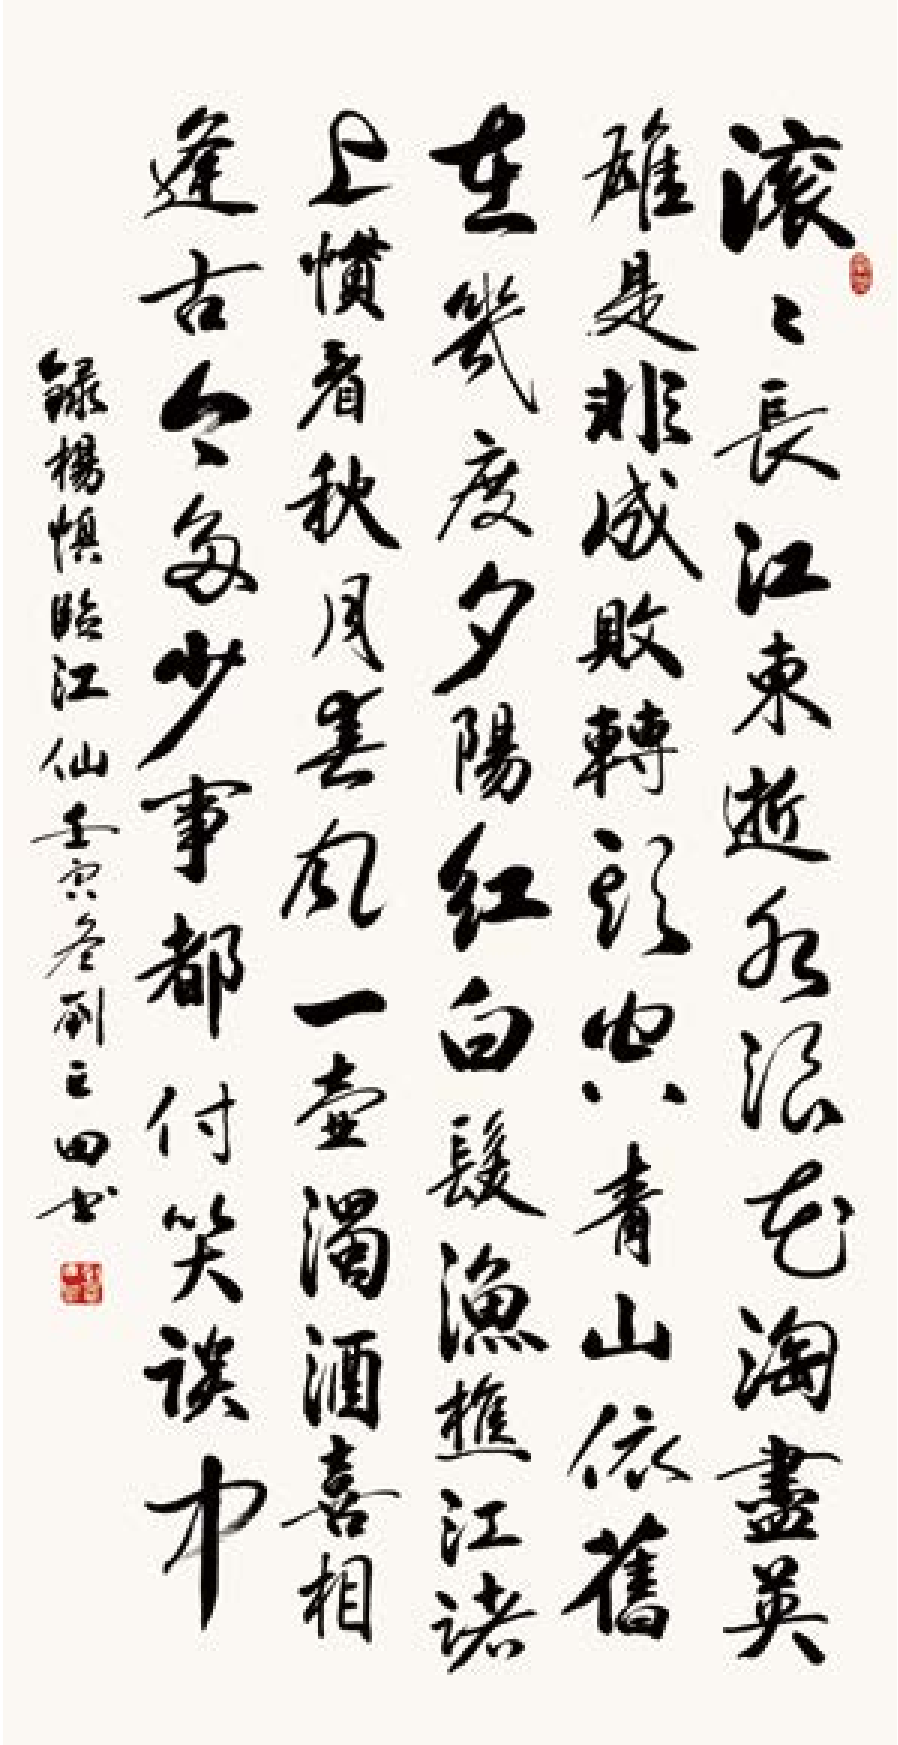 滚〻長江東逝水浪花淘盡英
雄是非成敗轉頭空青山依舊
在幾度夕陽紅白髮漁樵江渚
上慣看秋月春風一壺濁酒喜相
逢古今多少事都付笑談中
錄楊慎臨江仙壬寅冬劉立田书